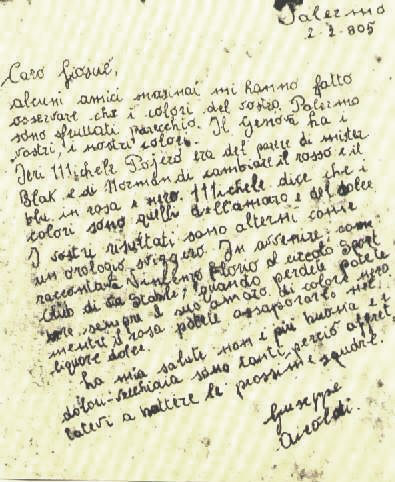 Palermo
2-2-905
Caro Giosuè,
alcuni amici marinai mi hanno fatto
osservare che i colori del vostro Palermo
sono sfruttati parecchio. Il Genova ha i
vostri, i nostri colori.
Ieri Michele Pojero era del parere di mister
Blak e di Norman di cambiare il rosso e il
blu in rosa e nero. Michele dice che i
colori sono quelli dell'amaro e del dolce
I vostri risultati sono alterni come
un orologio svizzero. In avvenire, come
raccontava Vincenzo Florio al circolo Sport
Club di via Stabile, quando perdete potete
bere sempre il suo amaro di colore nero
mentre il rosa potete assaporarlo nel
liquore dolce.
La mia salute non è più buona e i
dolori-vecchiaia sono tanti, perciò affret
tatevi a battere le prossime squadre.
Giuseppe
Airoldi.